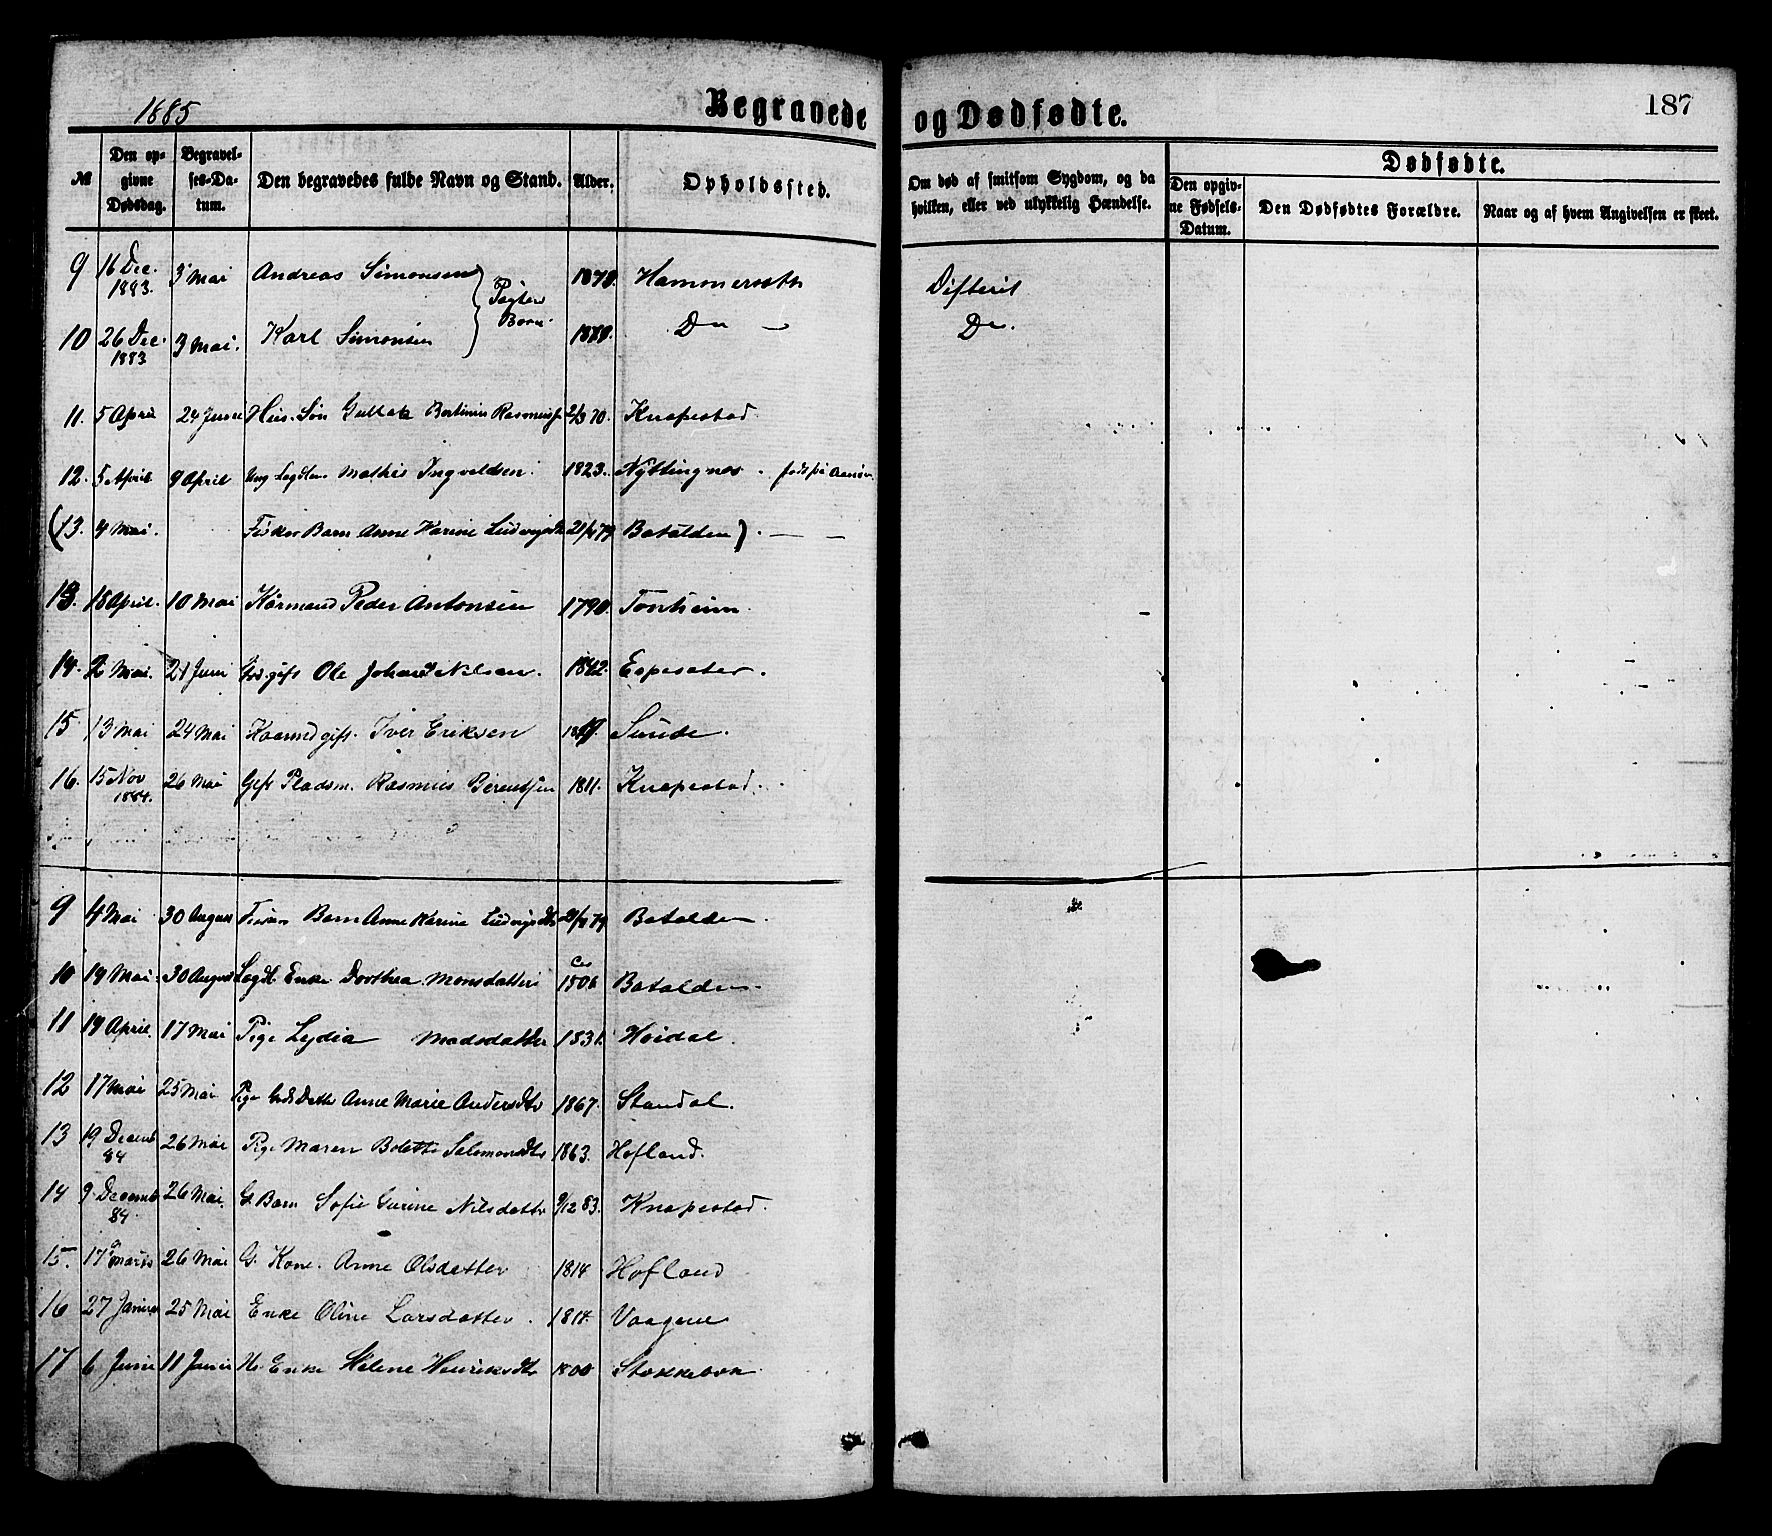 1885
Begravede og Dødfødte.
187
№
Den opgivne Dødsdag.
Begravelses-Datum.
Den begravedes fulde Navn og Stand.
Alder.
Opholdssted.
Om død af smitsom Sygdom, og da hvilken, eller ved ulykkelig Hændelse.
Dødfødte.
Den opgivne Fødsels-Datum.
Den Dødfødtes Forældre.
Naar og af hvem Angivelsen er skeet.
9 16 Dec. 1883. 3 Mai Andreas Simonsen Hammersæth Difterit
10 26 Dec. 1883 3 Mai. Karl Simonsen Do — Do.
Børn.
11. 5 April 24 Søn Bertinius 2/3 70. Knapestad.
12. 5 April 9 April Mathis Ingvaldsen. 1823. Nyttingnæs.
(13. 4 Mai. Fisker Barn Anne Karine Batalden). — —
13. 18 April. 10 Mai Kårmand Peder Antonsen 1790. Tonheim.
14. 2 Mai. 21 Juni gift Ole Johan Nilsen. 1842. Espesæter.
15. 13 Mai 24 Mai gift. Iver Eriksen Sunde.
16. 15 Nov 1884. 26 Mai Gift Pladsm. Rasmus Berentsen 1811. Knapestad.
9 4 Mai 30 August Barn Anne Karine Batalden.
10 19 Mai. 30 August Lægdl. Enke Dorthea Monsdatter Ca Batalden.
11 19 April. 17 Mai Pige Lydia Madsdatter Høidal.
12 17 Mai 25 Mai Pige Anne Marie Andersdtr 1867. Standal.
13 19 Decemb 84 26 Mai Pige Maren Bolette Salomonsdtr 1863. Hofland.
14 9 Decemb 84. 26 Mai. G. Barn Sofie Nilsdatter 9/12 83. Knapestad.
15. 17 Marts 26 Mai G. Kone. Anne Olsdatter 1814 Hofland
16 27 Januar 25 Mai Enke Oline Larsdatter. Vaagene
17 6 Juni 11 Juni Enke Helene Henriksdtr 1800 Stokkebøn.